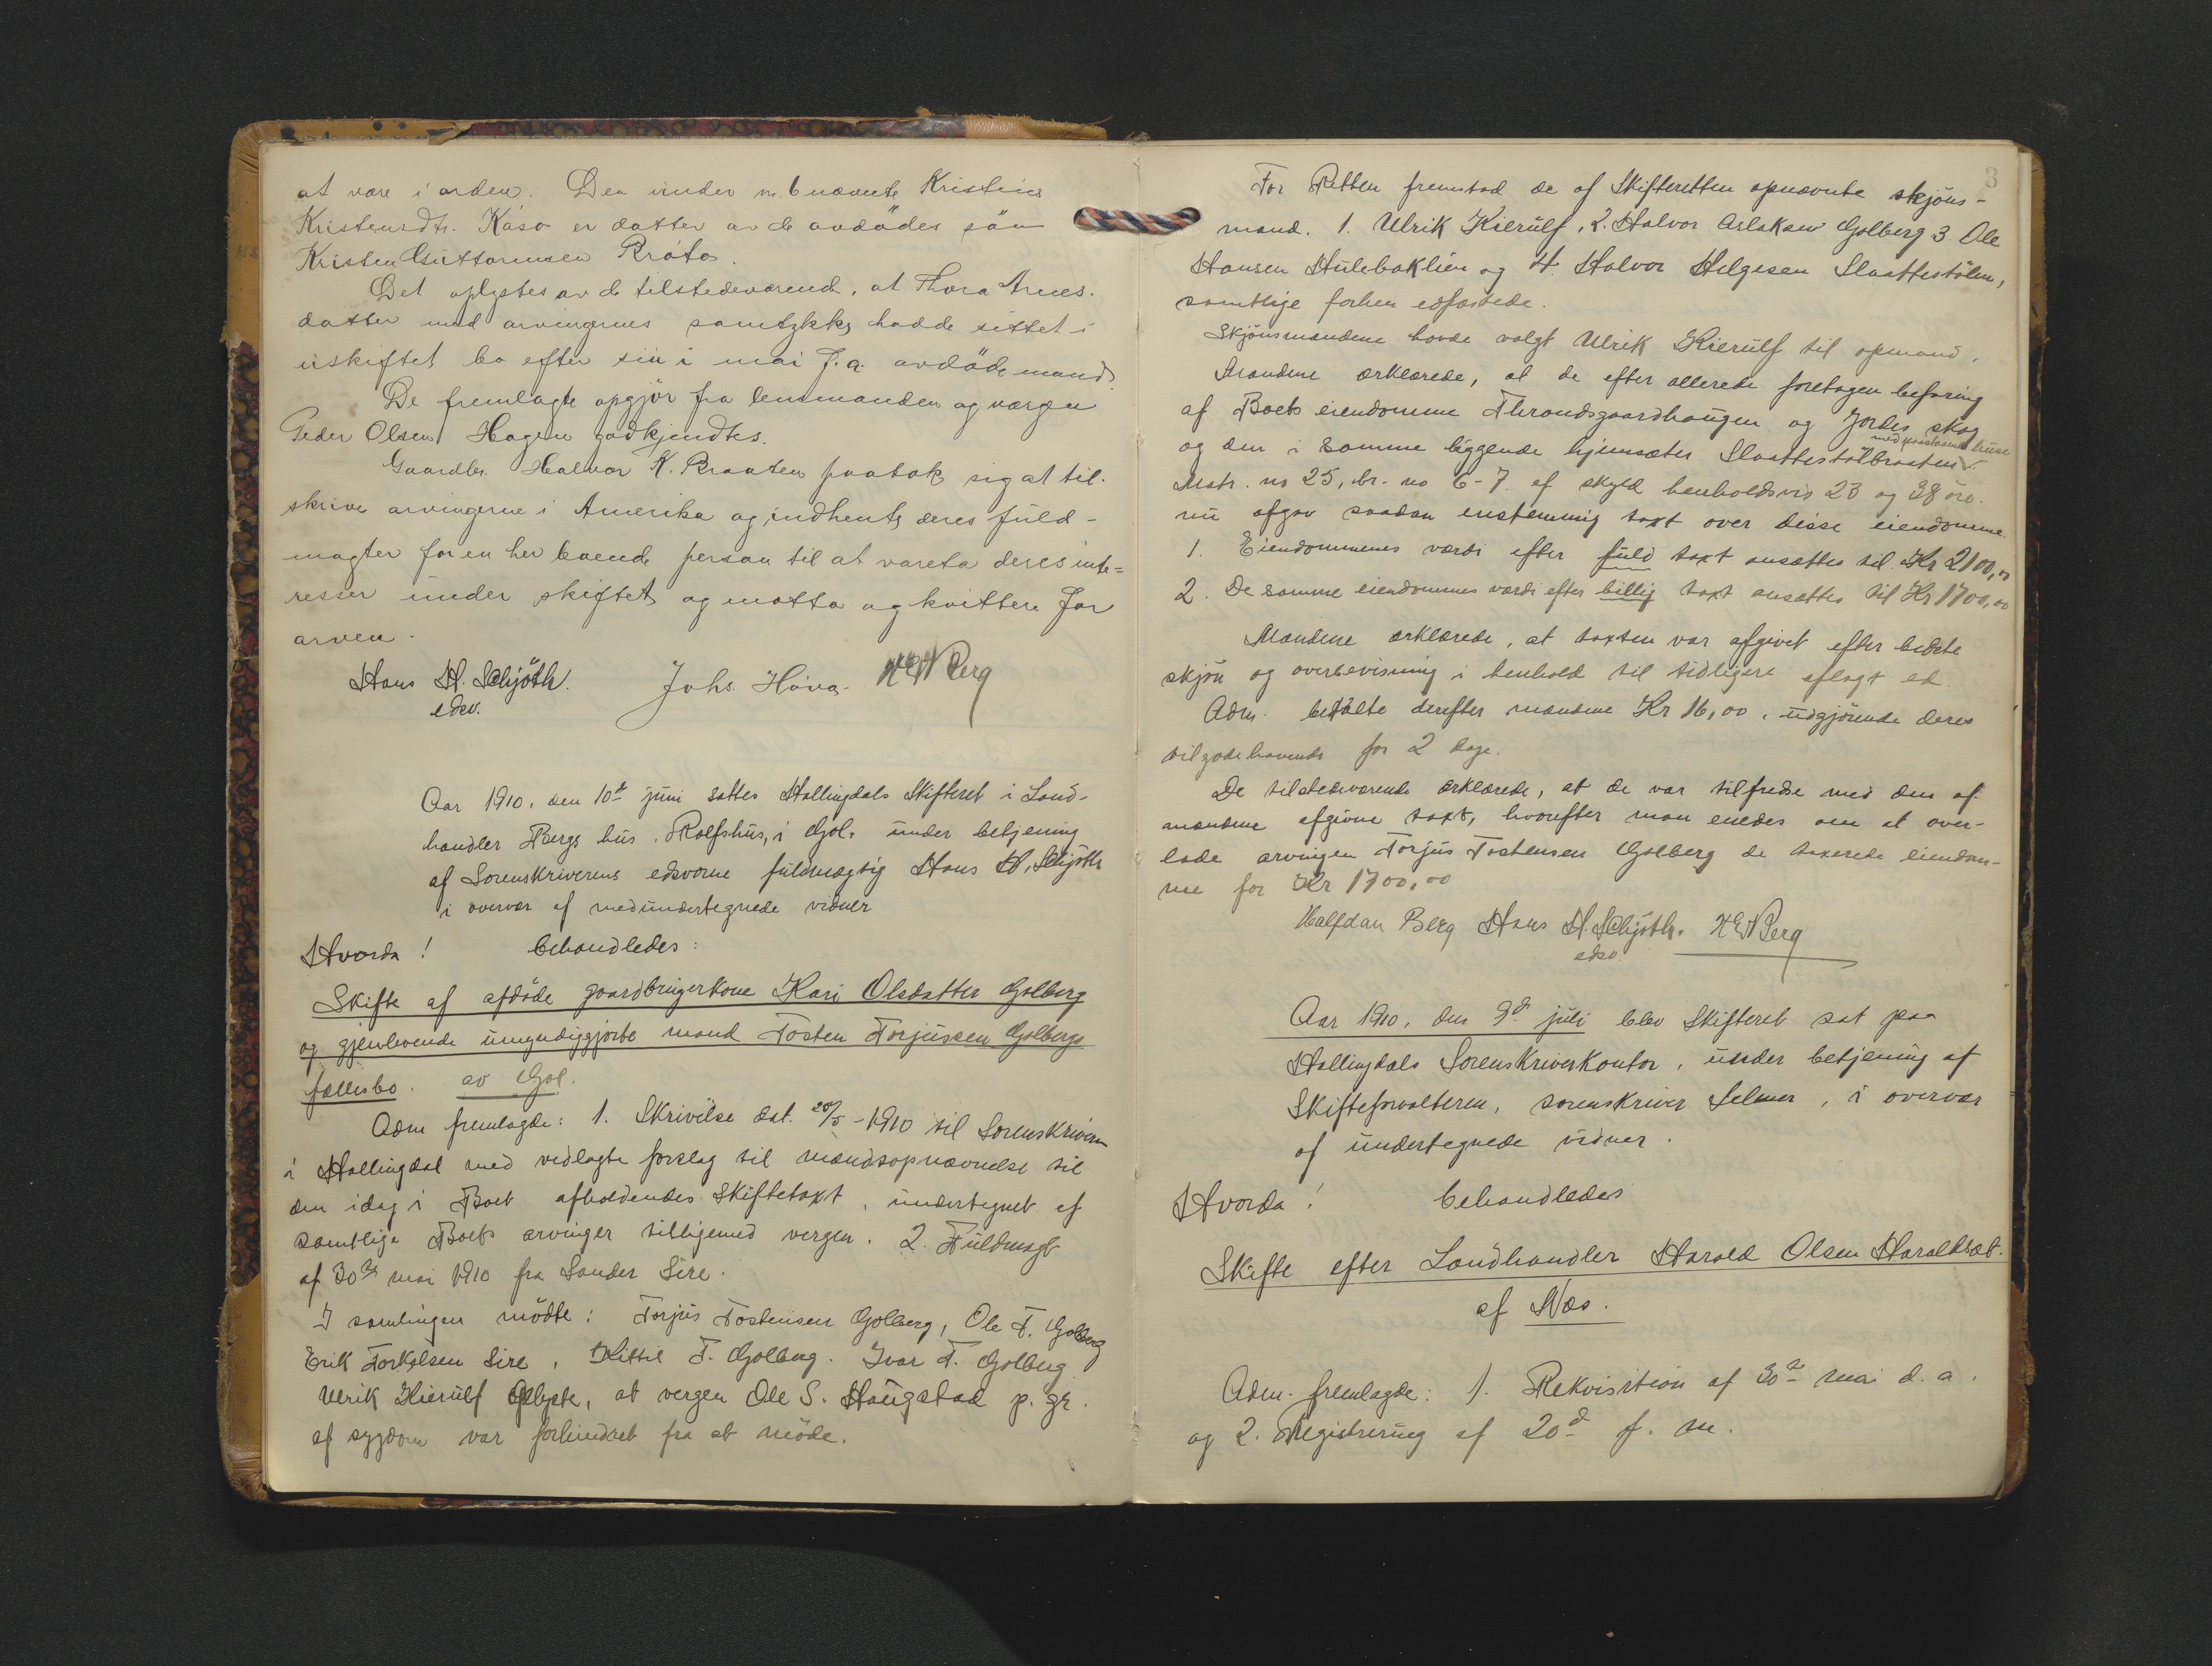 at være i orden. Den under no 6 nævnte Kristine
Kristensdtr. Kåsa er datter av de avdødes søn
Kristen Guttormsen Bråta.
Det oplystes av de tilstedeværende, at Thora Arnes-
datter med arvingernes samtykke hadde sittet i
uskiftet bo efter sin i mai f.a. avdøde mand.
De fremlagte opgjør fra lensmanden og værgen
Peder Olsen Hagen godkjendtes.
Gaardbr. Halvor K. Braaten paatok sig at til-
skrive arvingerne i Amerika og indhente deres fuld-
magter for en her boende person til at vareta deres inte=
resser under skiftet og motta og kvittere for
arven.
Hans H. Schjöth. Johs. Höva. H E N Berg
edsv.
Aar 1910, den 10de juni sattes Hallingdals Skifteret i Land-
handler Bergs hus, Rolfshus, i Gol, under betjening
af Sorenskriverens edsvorne fuldmægtig Hans H. Schjöth
i overvær af medundertegnede vidner
Hvorda! behandledes:
Skifte af afdöde gaardbrugerkone Kari Olsdatter Golberg
og gjenlevende umyndiggjorte mand Tosten Torjussen Golbergs
fællesbo. av Gol.
Adm fremlagde: 1. Skrivelse dat. 28/5-1910 til Sorenskriveren
i Hallingdal med vedlagte forslag til mandsopnævnelse til
den idag i Boet afholdendes Skiftetaxt, undertegnet af
samtlige Boets arvinger tilligemed vergen. 2. Fuldmagt
af 30de mai 1910 fra Sander Sire.
I samlingen mödte: Torjus Tostensen Golberg, Ole T. Golberg
Erik Torkelsen Sire, Kittil T. Golberg. Ivar T. Golberg
Ulrik Kierulf oplyste, at vergen Ole S. Haugstad p. gr.
af sygdom var forhindret fra at möde.
3
For Retten fremstod de af Skifteretten opnævnte skjöns-
mænd. 1. Ulrik Kierulf, 2. Halvor Aslaksen Golberg 3. Ole
Hansen Hulebaklien og 4. Halvor Helgesen Slaattestölen,
samtlige forhen edfæstede.
Skjönsmændene havde valgt Ulrik Kierulf til opmand.
Mændene erklærede, at de efter allerede foretagen befaring
af Boets eiendomme Throndsgaardhaugen og Jordes skog
og den i samme liggende hjemsæter Slaattestölbraaten
med paastaaende huse
Matr. no 25, br. no 6-7 af skyld henholdsvis 23 og 38 öre.
nu afgav saadan enstemmig taxt over disse eiendomme.
1. Eiendommenes værdi efter fuld taxt ansættes til Kr 2100,00
2. De samme eiendommes værdi efter billig taxt ansættes til Kr 1700,00
Mændene erklærede, at taxten var afgivet efter bedste
skjön og overbevisning i henhold til tidligere aflagt ed.
Adm. betalte derefter mændene Kr 16,00, udgjörende deres
tilgodehavende for 2 dage.
De tilstedeværende erklærede, at de var tilfredse med den af
mændene afgivne taxt, hvorefter man enedes om at over-
lade arvingen Torjus Tostensen Golberg de taxerede eiendom-
me for Kr 1700,00
Halfdan Berg Hans H. Schjöth. H E N Berg
edsv.
Aar 1910, den 9de juli blev Skifteret sat paa
Hallingdals Sorenskriverkontor, under betjening af
Skifteforvalteren, sorenskriver Selmer, i overvær
af undertegnede vidner.
Hvorda! behandledes
Skifte efter Landhandler Harald Olsen Haraldset.
af Næs.
Adm. fremlagde: 1. Rekvisition af 30te mai d. a.
og 2. Registrering af 20de f. m.